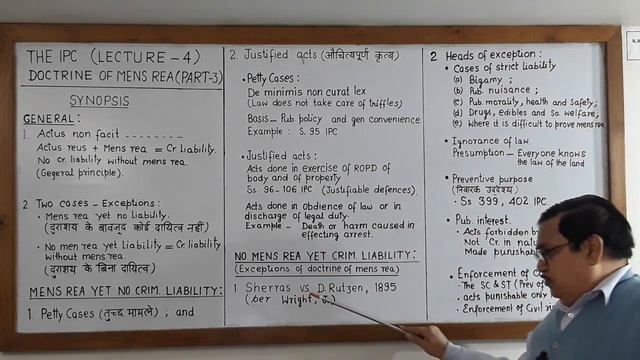 THE IPC (LECTURE - 4)
DOCTRINE OF MENS REA (PART-3)
SYNOPSIS
GENERAL :
1. Actus non facit --------
Actus reus + Mens rea = Cr. liability.
No cr. liability without mens rea.
(Gegeral principle).
2 Two cases - Exceptions :
• Mens rea yet no liability.
(दुराशय के बावजूद कोई दायित्व नहीं)
• No men rea yet liability = Cr. liability
without mens rea
(दुराशय के बिना दायित्व)
MENS REA YET NO CRIM. LIABILITY :
1. Petty Cases (तुच्छ मामले) ; and
2. Justified acts (औचित्यपूर्ण कृत्य).
• Petty Cases :
De minimis non curat lex
(Law does not take care of triffles)
Basis - Pub policy and gen convenience
Example : S. 95 IPC
• Justified acts :
Acts done in exercise of ROPD of
body and of property
Ss. 96-106 IPC (Justifiable defences).
Acts done in obdience of law or in
discharge of legal duty.
Example - Death or harm caused in
effecting arrest.
NO MENS REA YET CRIM. LIABILITY :
(Exceptions of doctrine of mens rea)
1. Sherras vs. D. Rutzen, 1895
(per Wright, J.)
2 Heads of exception :
• Cases of strict liability
(a) Bigamy ;
(b) Pub. nuisance ;
(c) Pub. morality, health and safety ;
(d) Drugs, edibles and So. welfare ;
(e) Where it is difficult to prove mens rea
• Ignorance of law.
Presumption - Everyone knows
the law of the land.
• Preventive purpose
(निवारक उद्देश्य)
Ss 399, 402 IPC.
• Pub. interest.
Acts forbidden by
Not Cr. in
Made punishab
• Enforcement of C
• The SC & ST (Prev of
• acts punishable only
• Enforcement of Civil ri